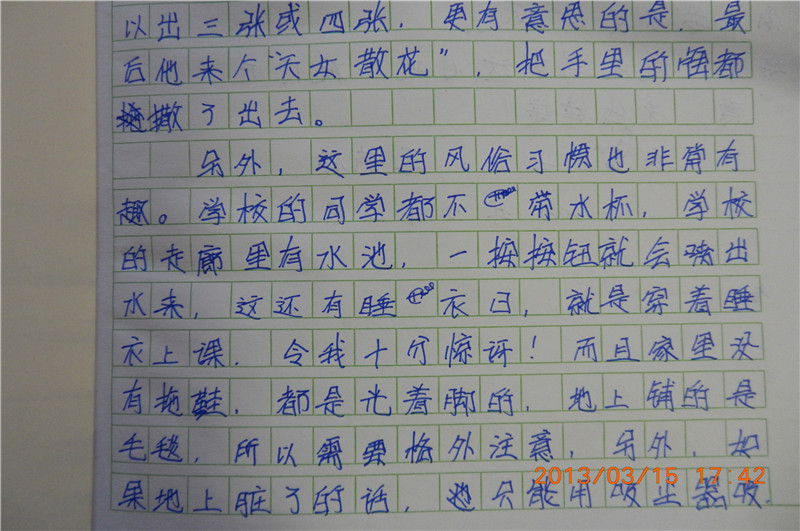 以出三张或四张，更有意思的是，最
后他来个"天女散花"，把手里的牌都
撒了出去。
另外，这里的风俗习惯也非常有
趣。学校的同学都不带水杯，学校
的走廊里有水池，一按按钮就会喷出
水来，这还有睡衣日，就是穿着睡
衣上课，令我十分惊讶！而且家里没
有拖鞋，都是光着脚的，地上铺的是
毛毯，所以需要格外注意，另外，如
果地上脏了的话，也只能用吸尘器吸
2013/03/15 17:42